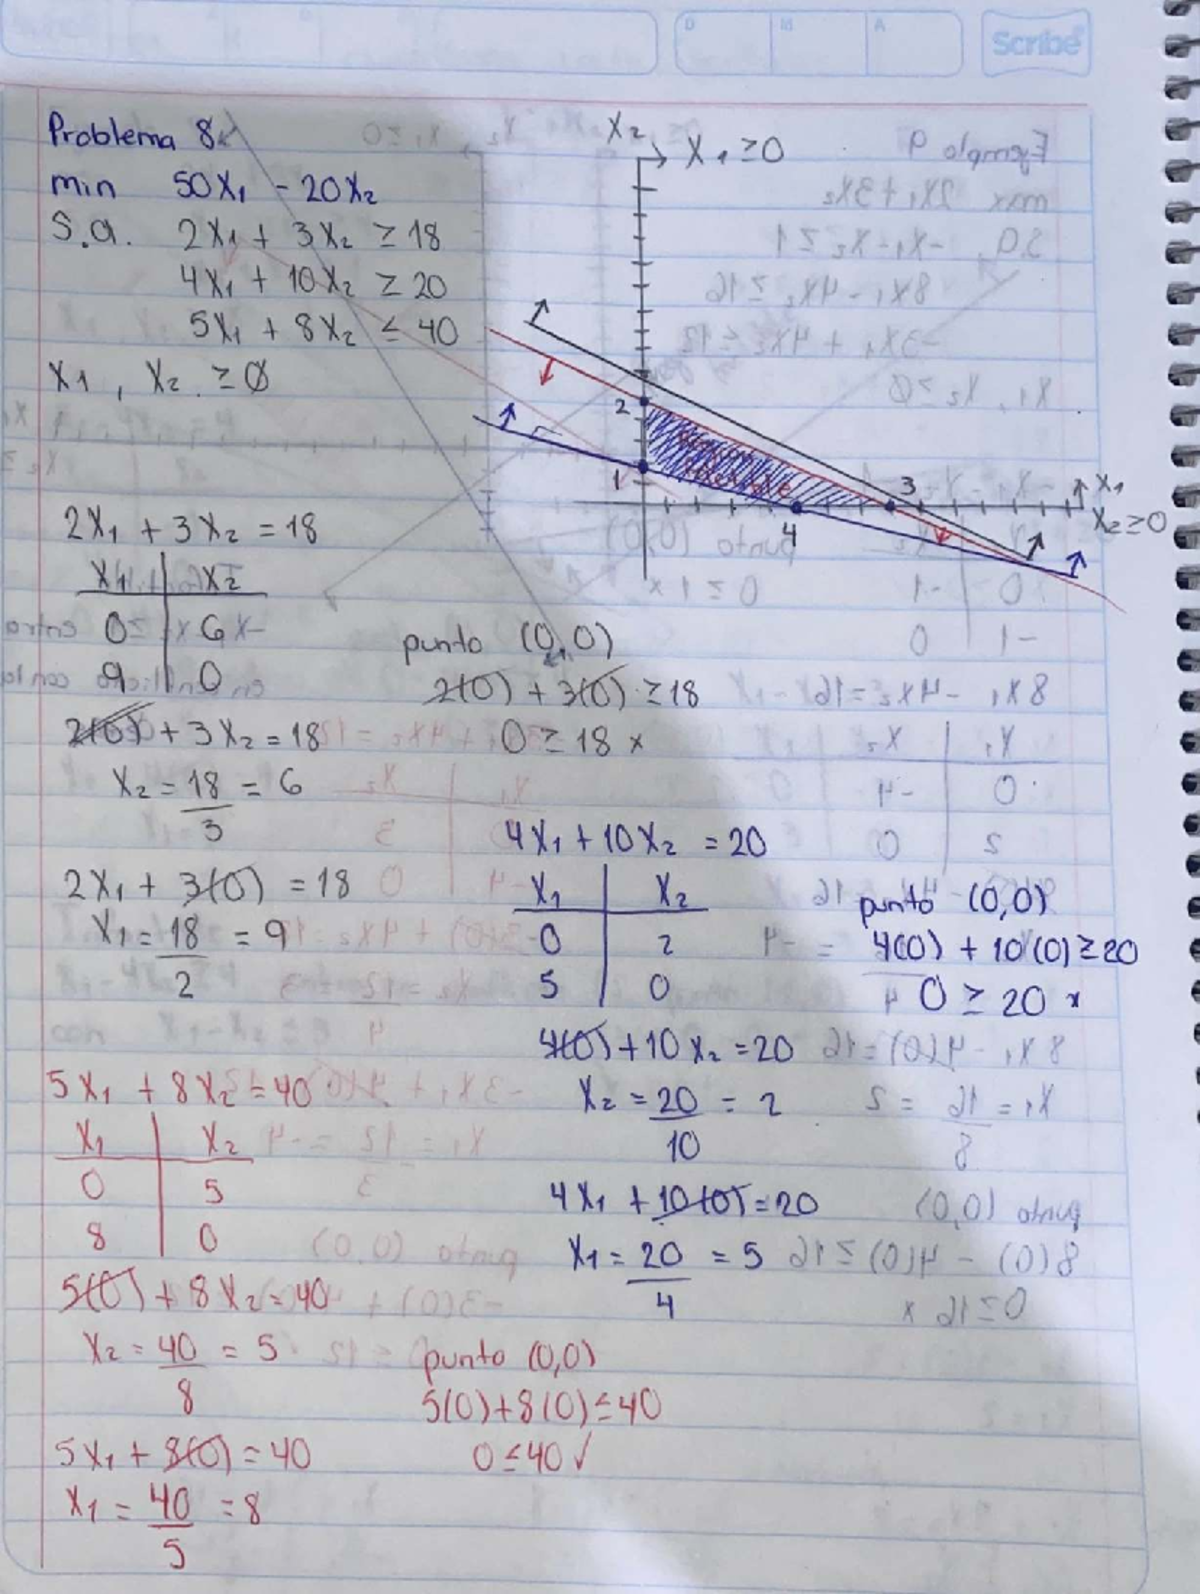 D M A Scribe
Problema 8
min 50X₁ - 20X₂
S.a. 2X₁ + 3X₂ ≥ 18
4X₁ + 10X₂ ≥ 20
5X₁ + 8X₂ ≤ 40
X₁ , X₂ ≥ 0
X₂
X₁ ≥ 0
2
1
3
4
X₁
X₂ ≥ 0
2X₁ + 3X₂ = 18
X₁ X₂
0 6
9 0
2(0) + 3X₂ = 18
X₂ = 18 = 6
3
2X₁ + 3(0) = 18
X₁ = 18 = 9
2
punto (0,0)
2(0) + 3(0) ≥ 18
0 ≥ 18 x
4X₁ + 10X₂ = 20
X₁ X₂
0 2
5 0
4(0) + 10X₂ = 20
X₂ = 20 = 2
10
4X₁ + 10(0) = 20
X₁ = 20 = 5
4
punto (0,0)
4(0) + 10(0) ≥ 20
0 ≥ 20 x
5X₁ + 8X₂ = 40
X₁ X₂
0 5
8 0
5(0) + 8X₂ = 40
X₂ = 40 = 5
8
5X₁ + 8(0) = 40
X₁ = 40 = 8
5
punto (0,0)
5(0) + 8(0) ≤ 40
0 ≤ 40 ✓